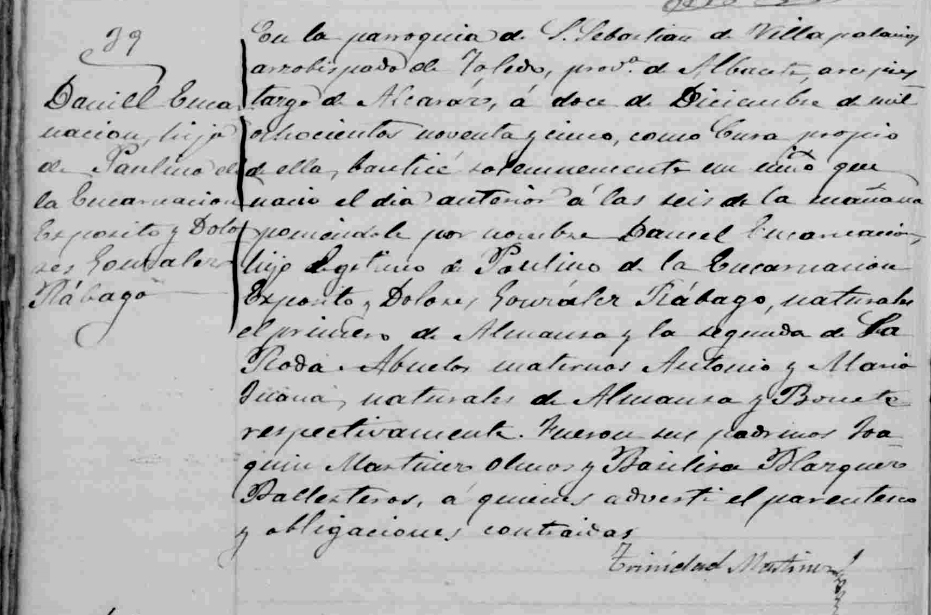 39
Daniel Encar
nacion, hijo
de Paulino de
la Encarnacion
Exposito y Dolo
res Gonzalez
Rábago
En la parroquia de S. Sebastian de Villapalacios
arzobispado de Toledo, provª. de Albacete, arcipres
tazgo de Alcaráz, á doce de Diciembre de mil
ochocientos noventa y cinco, como Cura propio
de ella, bauticé solemnemente un niño que
nacio el dia anterior á las seis de la mañana
poniendole por nombre Daniel Encarnacion,
hijo legitimo de Paulino de la Encarnacion
Exposito y Dolores González Rábago, naturales
el primero de Almansa y la segunda de La
Roda. Abuelos maternos Antonio y Maria
Juana, naturales de Almansa y Bonete
respectivamente. Fueron sus padrinos Joa
quin Martinez Olmos y Basilisa Blazquez
Ballesteros, á quienes adverti el parentesco
y obligaciones contraidas
Trinidad Martinez